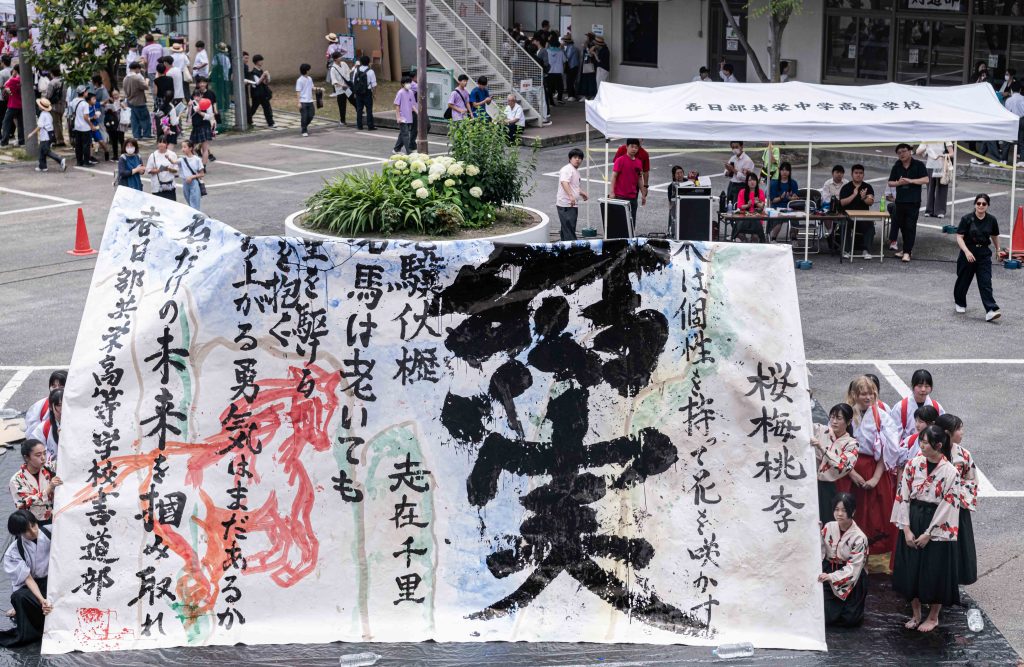 春日部共栄中学高等学校
桜梅桃李
は個性を持って花を咲かす
驥伏櫪
志在千里
馬は老いても
を駆ける
を抱く
ち上がる勇気はまだあるか
己だけの未来を掴み取れ
春日部共栄高等学校書道部